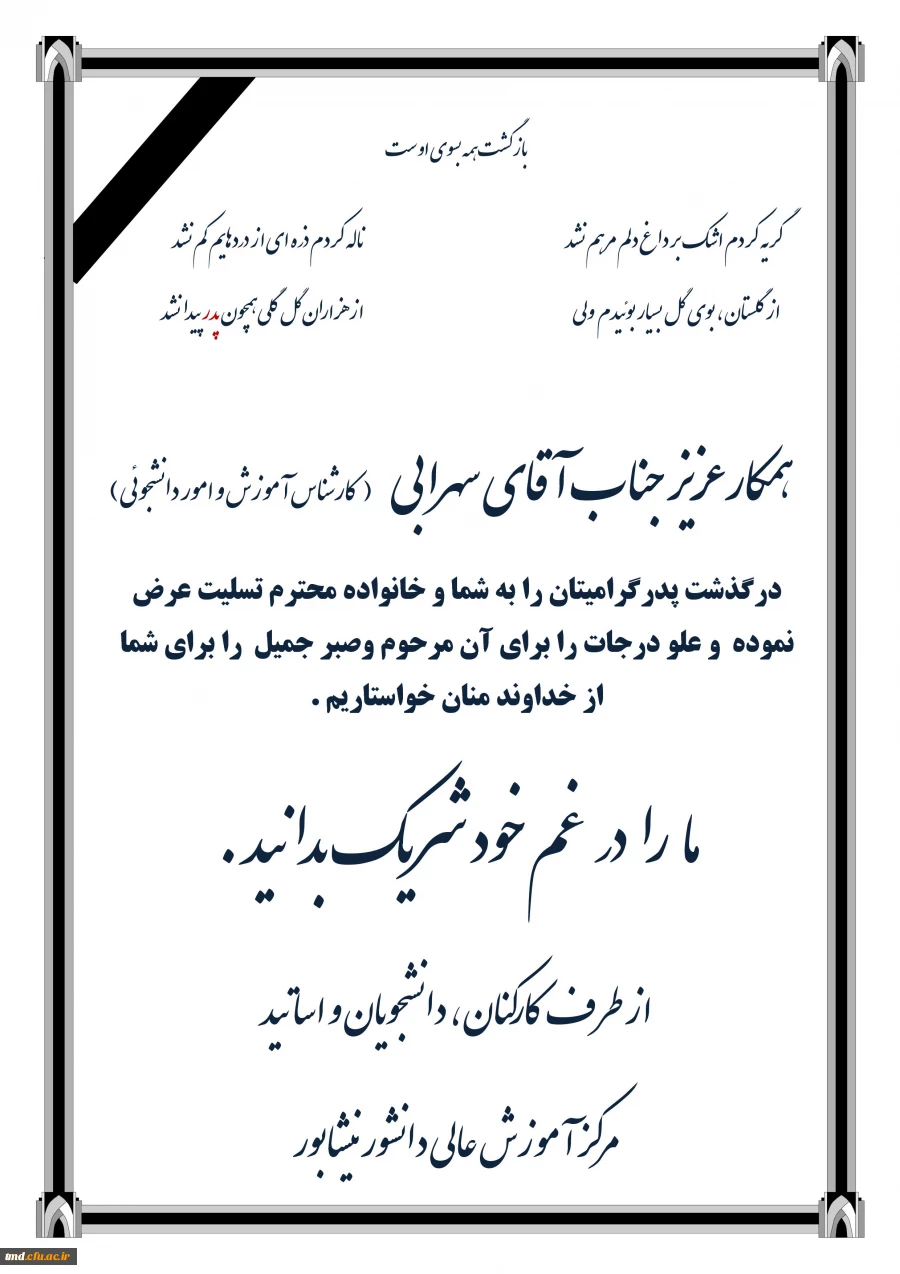 بازگشت همه بسوی اوست
گریه کردم اشک بر داغ دلم مرهم نشد ناله کردم ذره ای از دردهایم کم نشد
از گلستان، بوی گل بسیار بوئیدم ولی از هزاران گل گلی همچون پدر پیدا نشد
همکار عزیز جناب آقای سهرابی ( کارشناس آموزش و امور دانشجوئی)
درگذشت پدر گرامیتان را به شما و خانواده محترم تسلیت عرض
نموده و علو درجات را برای آن مرحوم وصبر جمیل را برای شما
از خداوند منان خواستاریم .
ما را در غم خود شریک بدانید .
از طرف کارکنان، دانشجویان و اساتید
مرکز آموزش عالی دانشور نیشابور
tmd.cfu.ac.ir